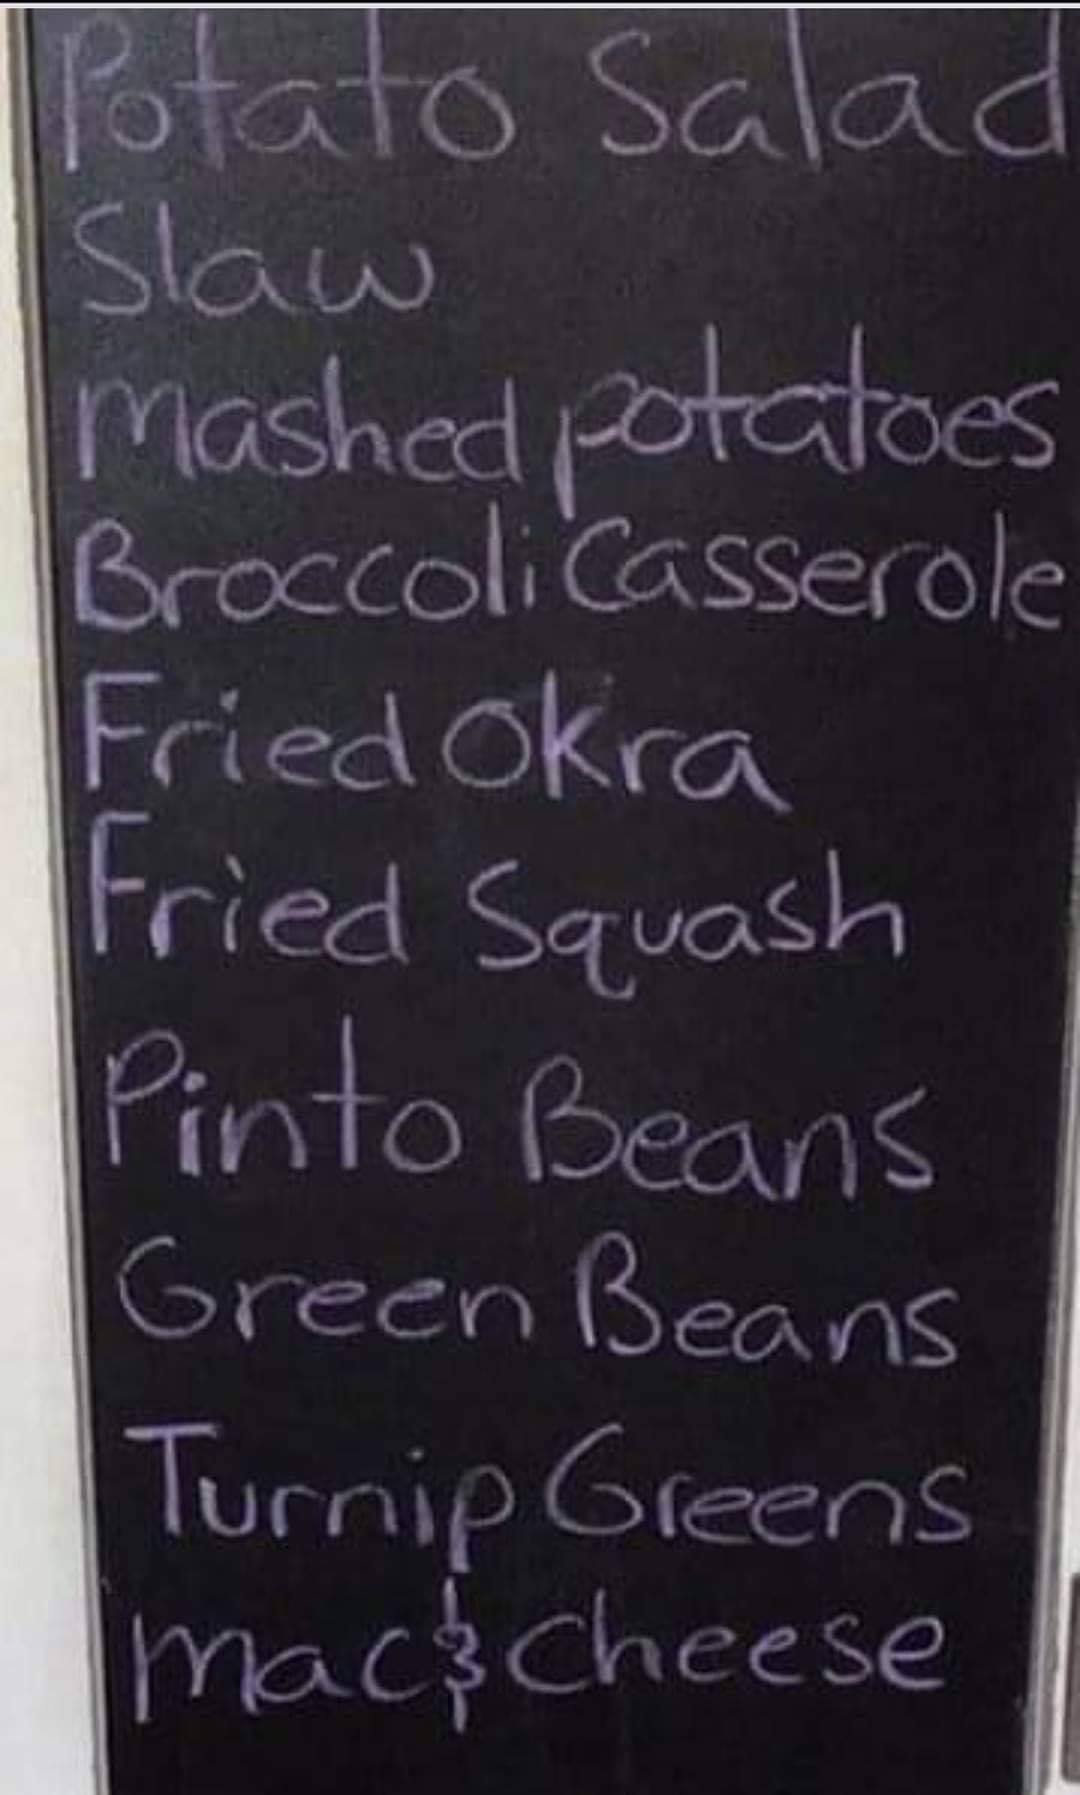 Potato Salad
Slaw
Mashed potatoes
Broccoli Casserole
Fried Okra
Fried Squash
Pinto Beans
Green Beans
Turnip Greens
Mac & Cheese